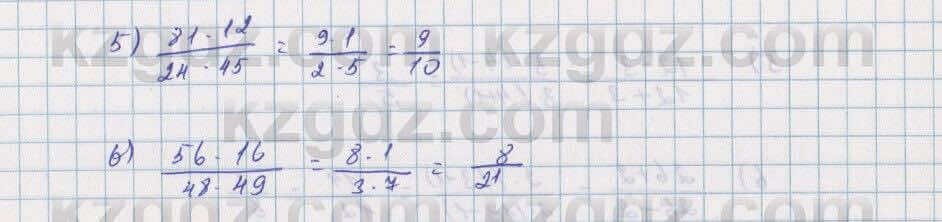 kzgdz.com kzgdz.com
5) 81 · 12 / 24 · 45 = 9 · 1 / 2 · 5 = 9 / 10
kzgdz.com
6) 56 · 16 / 48 · 49 = 8 · 1 / 3 · 7 = 8 / 21
kzgdz.com kzgdz.com